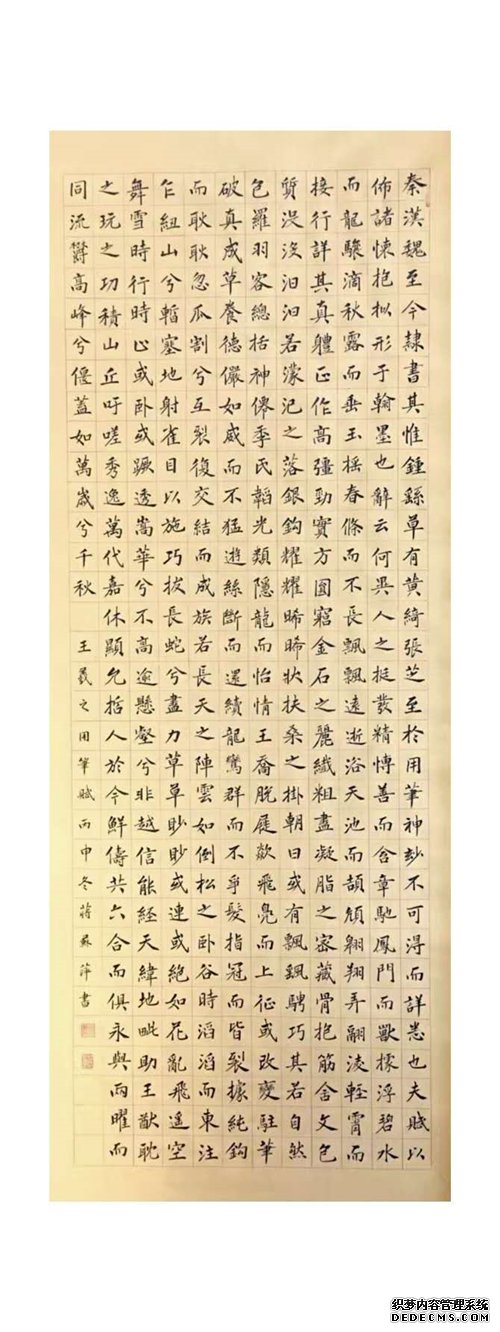 秦漢魏至今隸書其惟鍾繇草有黃綺張芝至於用筆神妙不可得而詳悉也夫賦以
佈諸懐抱拟形于翰墨也辭云何異人之挺發精愽善而含章馳鳳門而獸據浮碧水
而龍驤滴秋露而垂玉摇春條而不長飄飄遠逝浴天池而頡頏翱翔弄翮淩輕霄而
接行詳其真軆正作高彊勁實方圓窮金石之麗纖粗盡凝脂之密藏骨抱筋含文包
質没沒汩汩若濛汜之落銀鈎耀耀晞晞狀扶桑之掛朝日或有飄颻騁巧其若自然
包羅羽客總括神僊季氏韜光類隱龍而怡情王喬脱屣欻飛鳧而上征或改變駐筆
破真成草養德儼如威而不猛遊絲斷而還續龍鸞群而不爭髮指冠而皆裂據純鈎
而耿耿忽瓜割兮互裂復交結而成族若長天之陣雲如倒松之卧谷時滔滔而東注
乍紐山兮暫塞地射雀目以施巧拔長蛇兮盡力草草眇眇或連或絶如花亂飛遥空
舞雪時行時止或卧或蹶透嵩華兮不高逾懸壑兮非越信能經天緯地毗助王猷耽
之玩之功積山丘吁嗟秀逸萬代嘉休顯允哲人於今鮮儔共六合而俱永與兩曜而
同流鬱高峰兮偃蓋如萬歲兮千秋 王羲之用筆賦丙申冬蔣蘇萍書
织梦内容管理系统
DEDECMS.COM